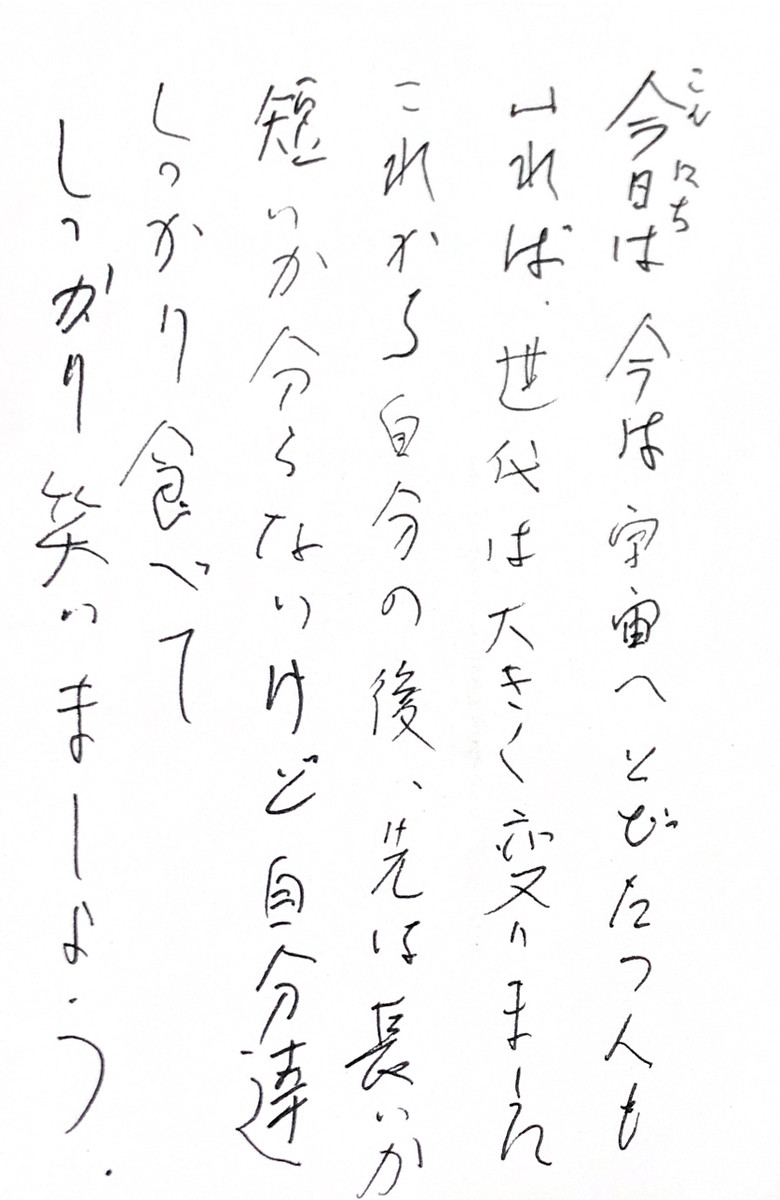 こんにち
今日は 今は宇宙へとびたつ人も
いれば、世代は大きく変りました
これから自分の後、先は長いか
短いか分らないけど自分達
しっかり食べて
しっかり笑いましょう.